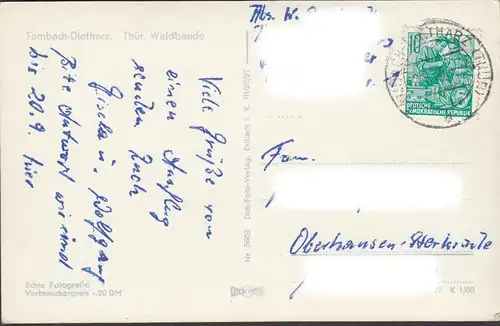 Tambach-Dietharz. Thür. Waldbaude
Viele Grüße von
einen Ausflug
senden Euch
Gisela u. Wolfgang
Bitte Antwort wir sind
bis 20.9. hier
Echte Fotografie
Verbraucherpreis -.20 DM
Nr. 5663 Dick-Foto-Verlag, Erlbach i. V. III/26/97
Abs. W.
10
DEUTSCHE
DEMOKRATISCHE REPUBLIK
Fam.
Oberhausen-Sterkrade
K 1/60